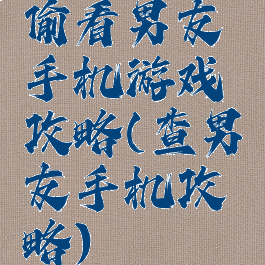 偷看男友
手机游戏
攻略(查男
友手机攻
略)